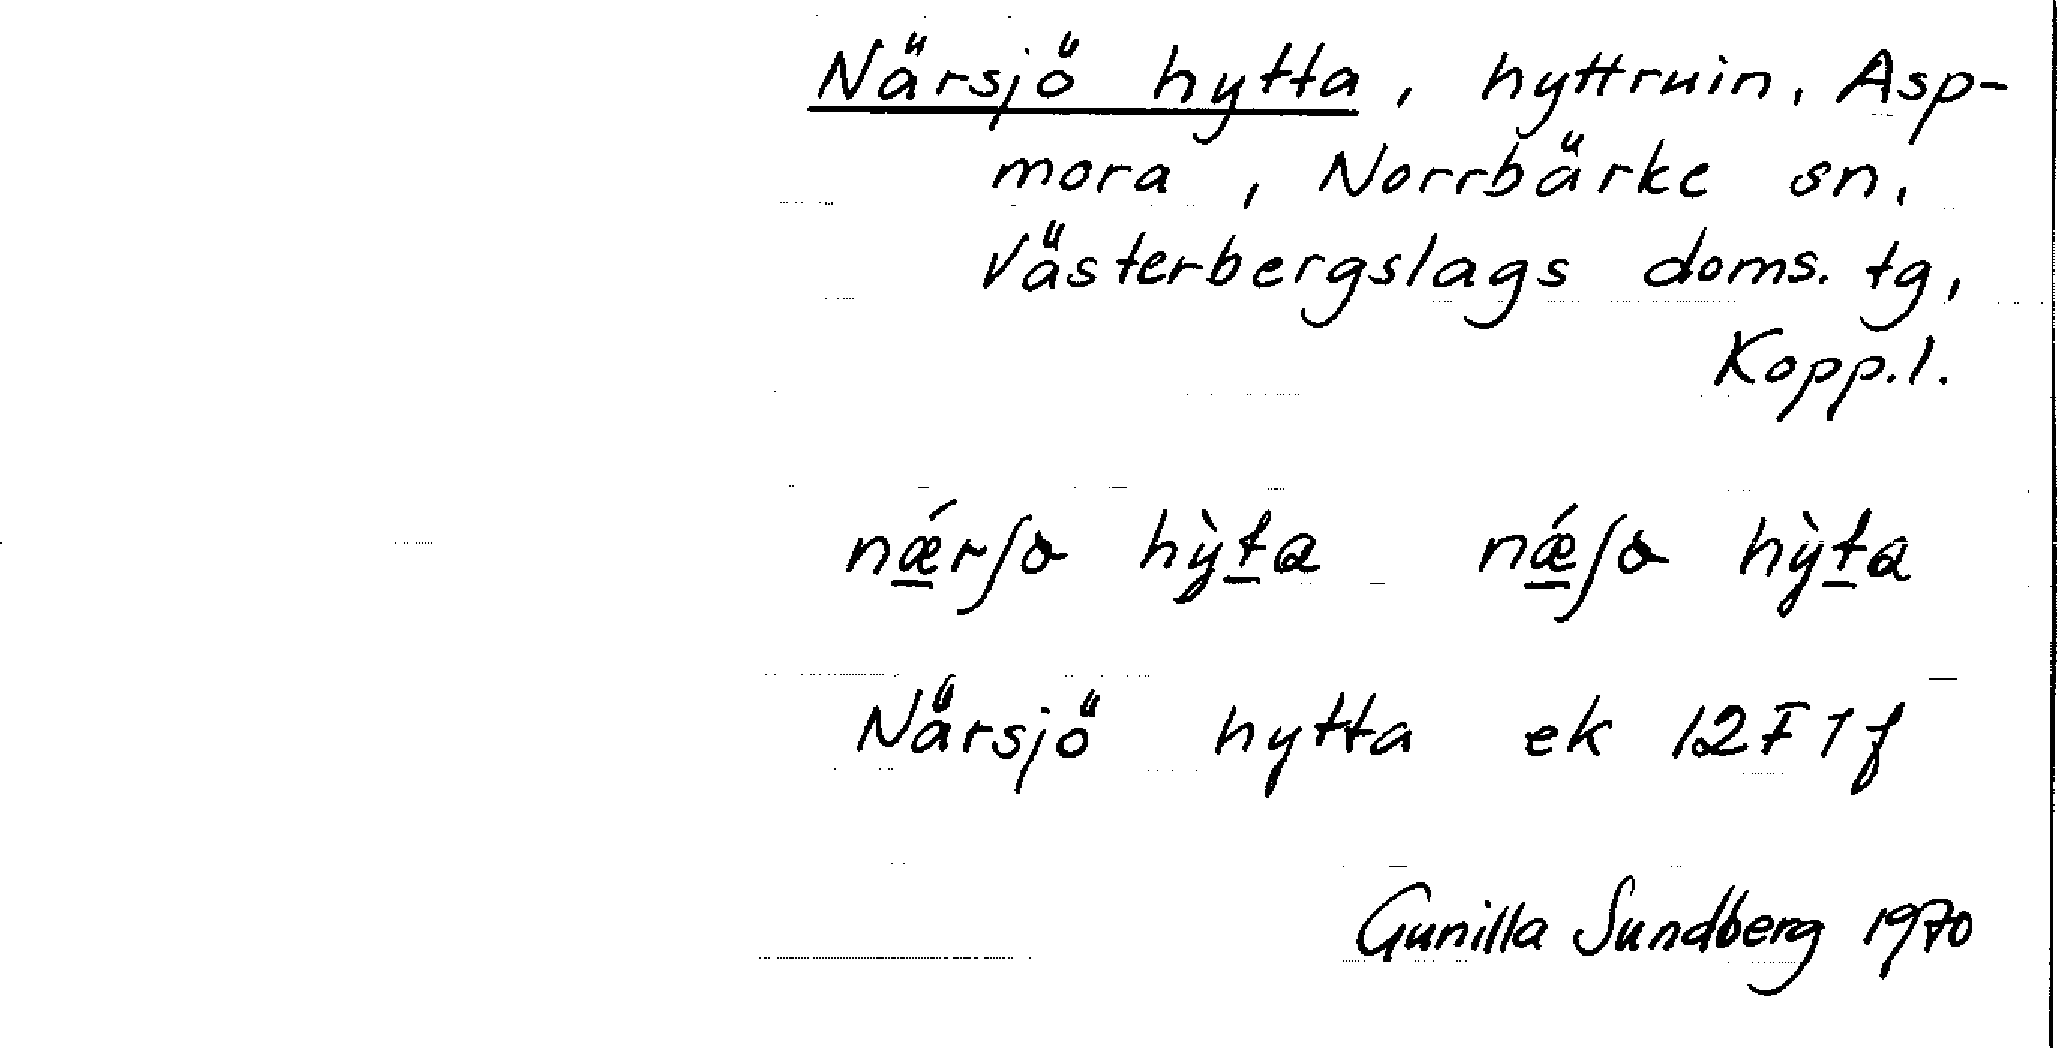 Närsjö hytta, hyttruin, Asp-
mora, Norrbärke sn,
Västerbergslags doms. tg,
Kopp.l.
nǽrʃɷ hỳta nǽʃɷ hỳta
Närsjö hytta ek 12F 7f
Gunilla Sundberg 1970